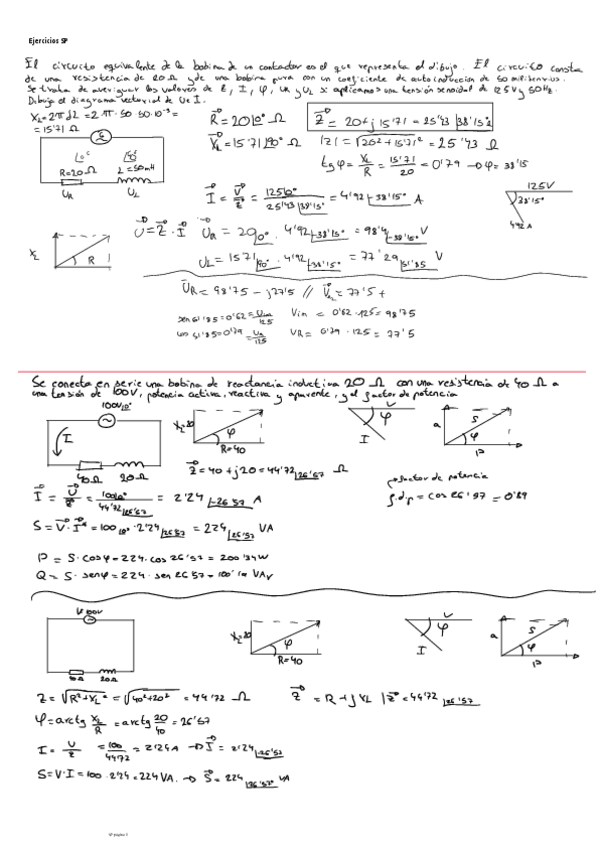 Ejercicios SP
El circuito equivalente de la bobina de un contactor es el que representa el dibujo. El circuito consta
de una resistencia de 20 Ω y de una bobina pura con un coeficiente de autoinducción de 50 milihenrios.
Se trata de averiguar los valores de Z, I, φ, UR y UL si aplicamos una tensión senoidal de 125V y 50Hz.
Dibuja el diagrama vectorial de U e I.
XL = 2πfL = 2·π·50·50·10⁻³ =
= 15'71 Ω
R = 20∠0° Ω
Z = 20 + j15'71 = 25'43∠38'15° Ω
XL = 15'71∠90° Ω
|Z| = √20² + 15'71² = 25'43 Ω
tg φ = XL/R = 15'71/20 = 0'79 → φ = 38'15
R=20Ω L=50mH
UR UL
I = V/Z = 125∠0°/25'43∠38'15° = 4'92∠-38'15° A
125V
38'15°
4'92A
U = Z · I UR = 20∠0° · 4'92∠-38'15° = 98'4∠-38'15° V
UL = 15'71∠90° · 4'92∠-38'15° = 77'29∠51'85 V
XL R
UR = 98'75 - j77'5 // UL = 77'5 +
sen 51'85 = 0'62 = Uin/125 Vin = 0'62·125 = 98'75
cos 51'85 = 0'79 = UR/125 VR = 0'79·125 = 77'5
Se conecta en serie una bobina de reactancia inductiva 20 Ω con una resistencia de 40 Ω a
una tensión de 100V, potencia activa, reactiva y aparente, y el factor de potencia
100V∠0°
I
40Ω 20Ω
XL=20 φ R=40
V φ I
Q S φ P
Z = 40 + j20 = 44'72∠26'57 Ω
factor de potencia
f.d.p = cos 26'57 = 0'89
I = U/Z = 100∠0°/44'72∠26'57 = 2'24∠-26'57 A
S = V · I* = 100∠0° · 2'24∠26'57 = 224∠26'57 VA
P = S · cosφ = 224 · cos 26'57 = 200'34W
Q = S · senφ = 224 · sen 26'57 = 100'19 VAr
V 100V
40Ω 20Ω
XL=20 φ R=40
V φ I
Q S φ P
Z = √R² + XL² = √40² + 20² = 44'72 Ω Z = R + jXL |Z = 44'72∠26'57
φ = arctg XL/R = arctg 20/40 = 26'57
I = U/Z = 100/44'72 = 2'24A → I = 2'24∠-26'57
S = V·I = 100·2'24 = 224 VA. → S = 224∠26'57° VA
SP página 1